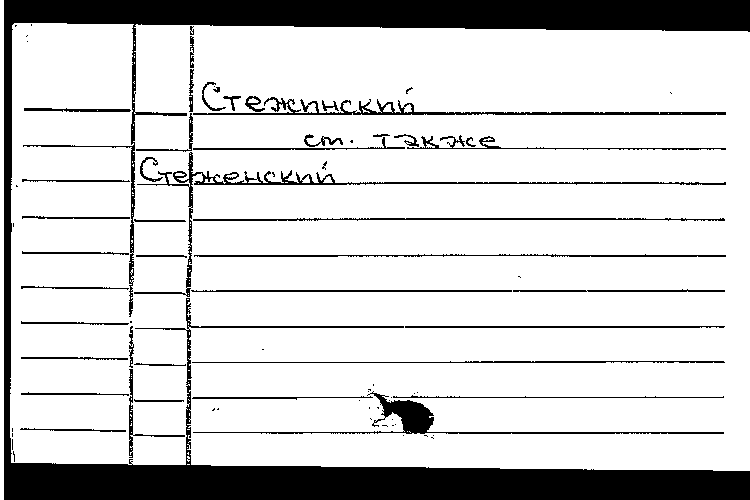 Стежинский
см. также
Стеженский